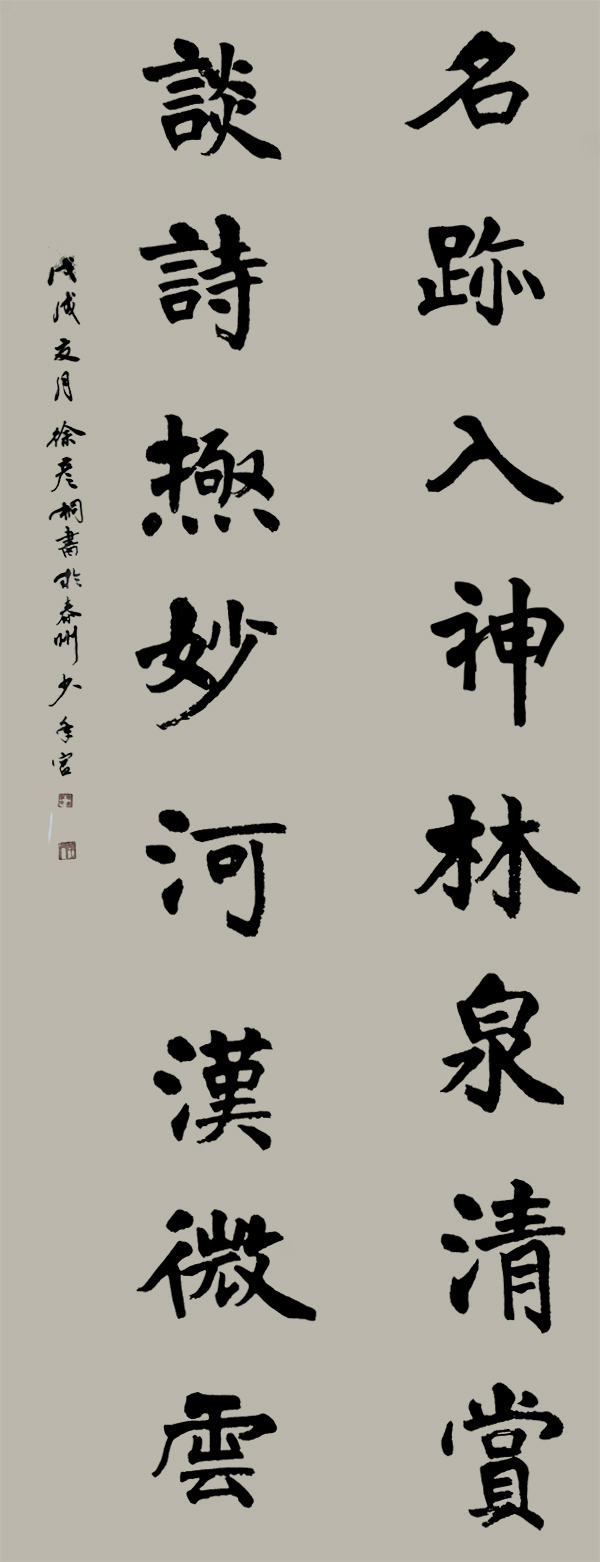 名跡入神林泉清賞
談詩極妙河漢微雲
戊戌夏月徐彦桐書於泰州少年宮